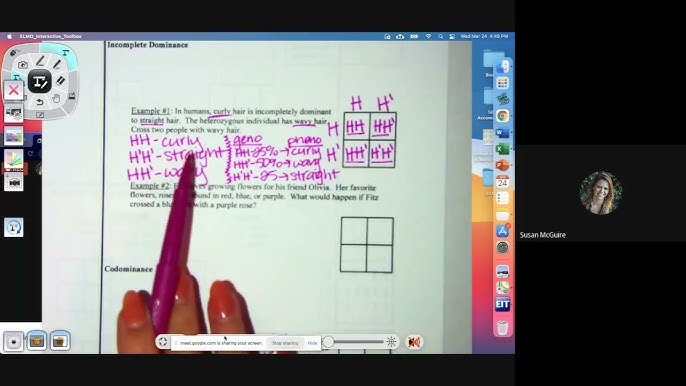 ELMO_Interactive_Toolbox
Wed Mar 24 4:49 PM
Incomplete Dominance
Example #1: In humans, curly hair is incompletely dominant
to straight hair. The heterozygous individual has wavy hair.
Cross two people with wavy hair.
HH - curly
H'H' - straight
HH' - wavy
geno pheno
HH-25% → curly
HH'-50% → wavy
H'H'-25 → straight
H H'
H HH HH'
H' HH' H'H'
Example #2: growing flowers for his friend Olivia. Her favorite
flowers, found in red, blue, or purple. What would happen if Fitz
crossed a with a purple rose?
Codominance
meet.google.com is sharing your screen. Stop sharing Hide
24
EIT
Susan McGuire